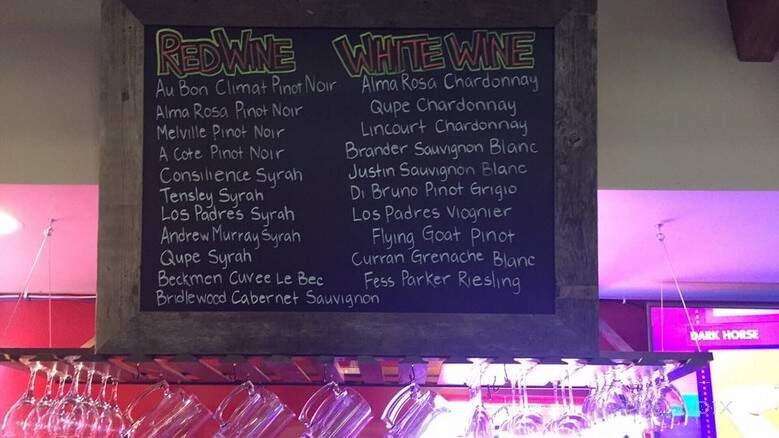 RED WINE
Au Bon Climat Pinot Noir
Alma Rosa Pinot Noir
Melville Pinot Noir
A Cote Pinot Noir
Consilience Syrah
Tensley Syrah
Los Padres Syrah
Andrew Murray Syrah
Qupe Syrah
Beckmen Cuvee Le Bec
Bridlewood Cabernet Sauvignon
WHITE WINE
Alma Rosa Chardonnay
Qupe Chardonnay
Lincourt Chardonnay
Brander Sauvignon Blanc
Justin Sauvignon Blanc
Di Bruno Pinot Grigio
Los Padres Viognier
Flying Goat Pinot
Curran Grenache Blanc
Fess Parker Riesling
DARK HORSE